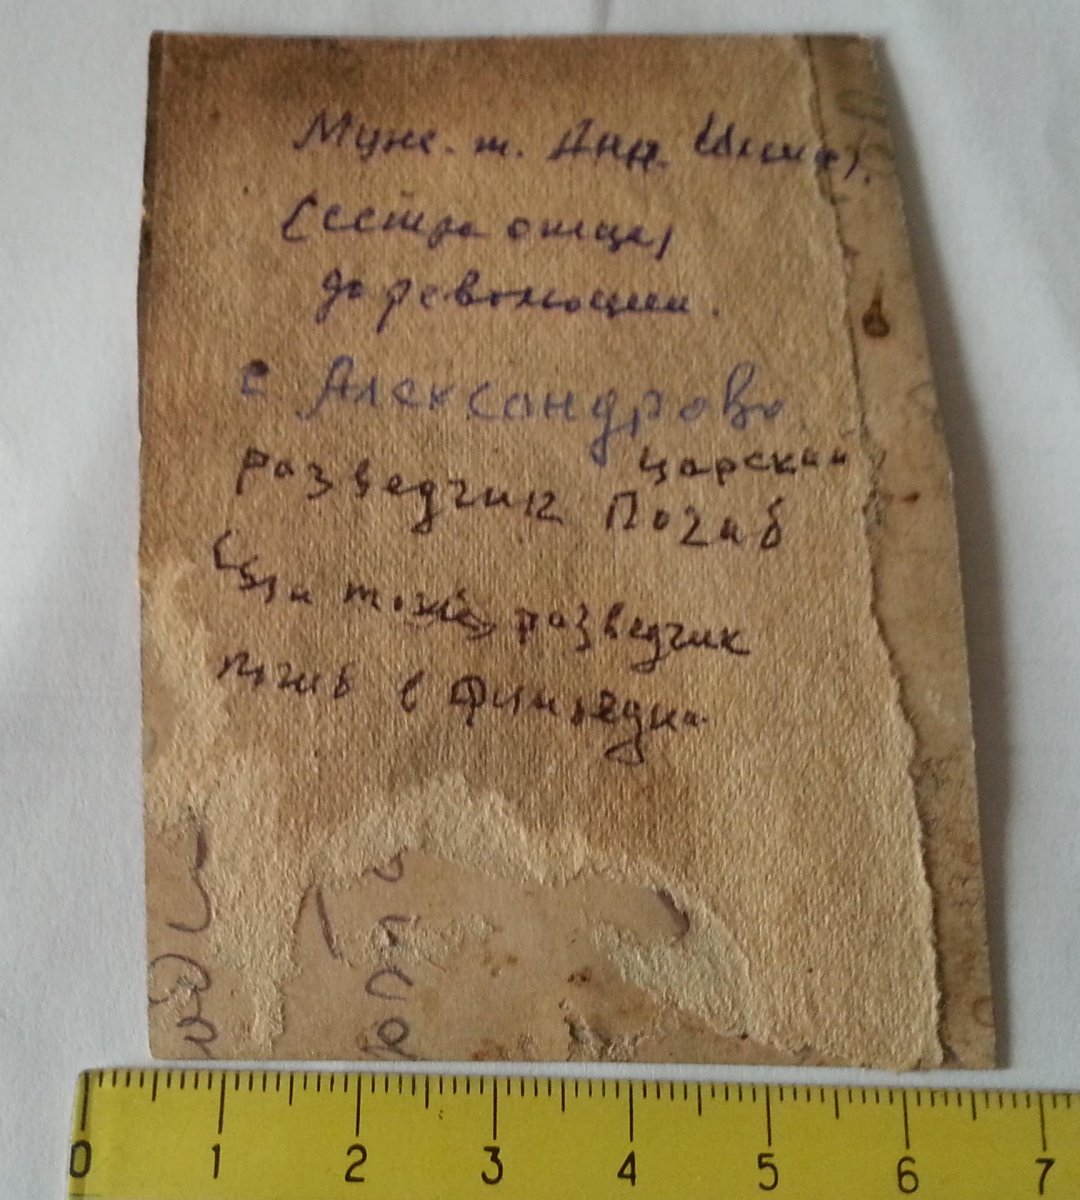 Муж. т. Анн
(сестра отца)
до революции.
с Александрово
царский
разведчик Погиб
Сын тоже разведчик
погиб в
0 1 2 3 4 5 6 7